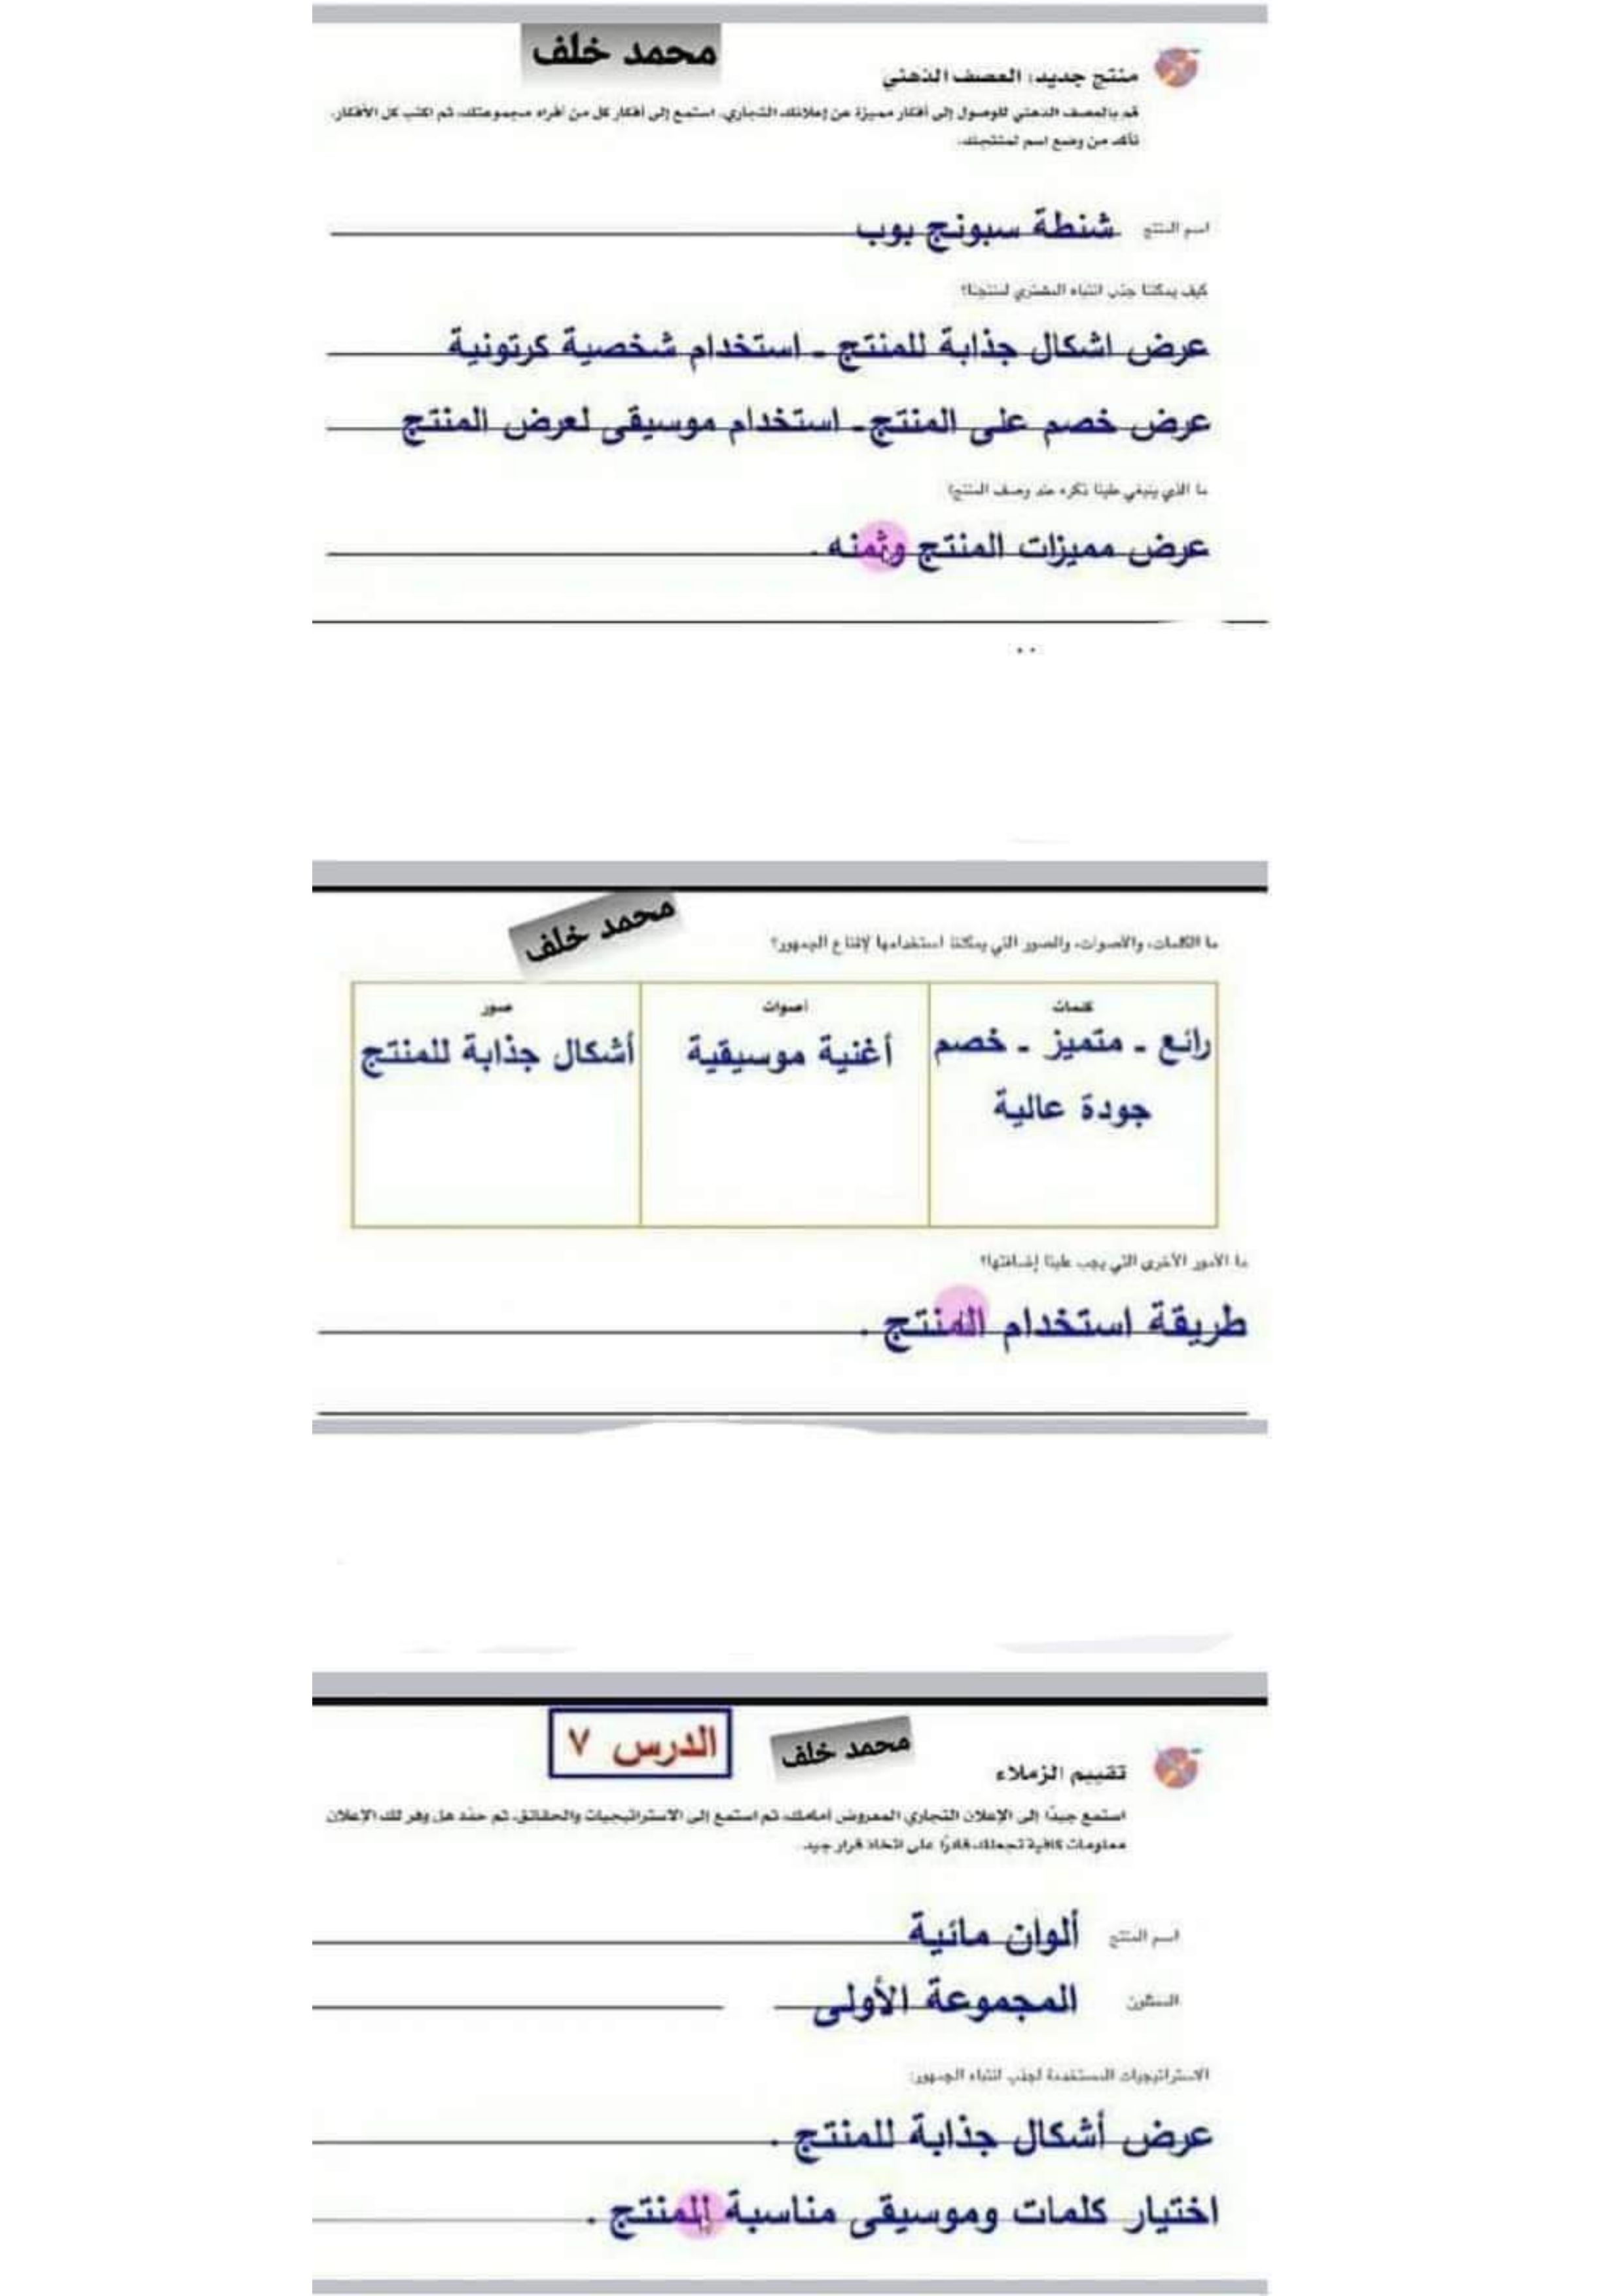 محمد خلف
منتج جديد: العصف الذهني
قم بالعصف الذهني للوصول إلى أفكار مميزة عن إعلانك التجاري. استمع إلى أفكار كل من أفراد مجموعتك، ثم اكتب كل الأفكار.
تأكد من وضع اسم لمنتجك.
اسم المنتج شنطة سبونج بوب
كيف يمكننا جذب انتباه المشتري لمنتجنا؟
عرض اشكال جذابة للمنتج - استخدام شخصية كرتونية
عرض خصم على المنتج - استخدام موسيقى لعرض المنتج
ما الذي ينبغي علينا ذكره عند وصف المنتج؟
عرض مميزات المنتج وثمنه .
محمد خلف
ما الكلمات، والأصوات، والصور التي يمكننا استخدامها لإقناع الجمهور؟
كلمات أصوات صور
رائع - متميز - خصم أغنية موسيقية أشكال جذابة للمنتج
جودة عالية
ما الأمور الأخرى التي يجب علينا إضافتها؟
طريقة استخدام المنتج .
الدرس ٧
محمد خلف
تقييم الزملاء
استمع جيدًا إلى الإعلان التجاري المعروض أمامك، ثم استمع إلى الاستراتيجيات والحقائق، ثم حدد هل وفر لك الإعلان
معلومات كافية تجعلك قادرًا على اتخاذ قرار جيد.
اسم المنتج ألوان مائية
الممثلون المجموعة الأولى
الاستراتيجيات المستخدمة لجذب انتباه الجمهور:
عرض أشكال جذابة للمنتج .
اختيار كلمات وموسيقى مناسبة للمنتج .